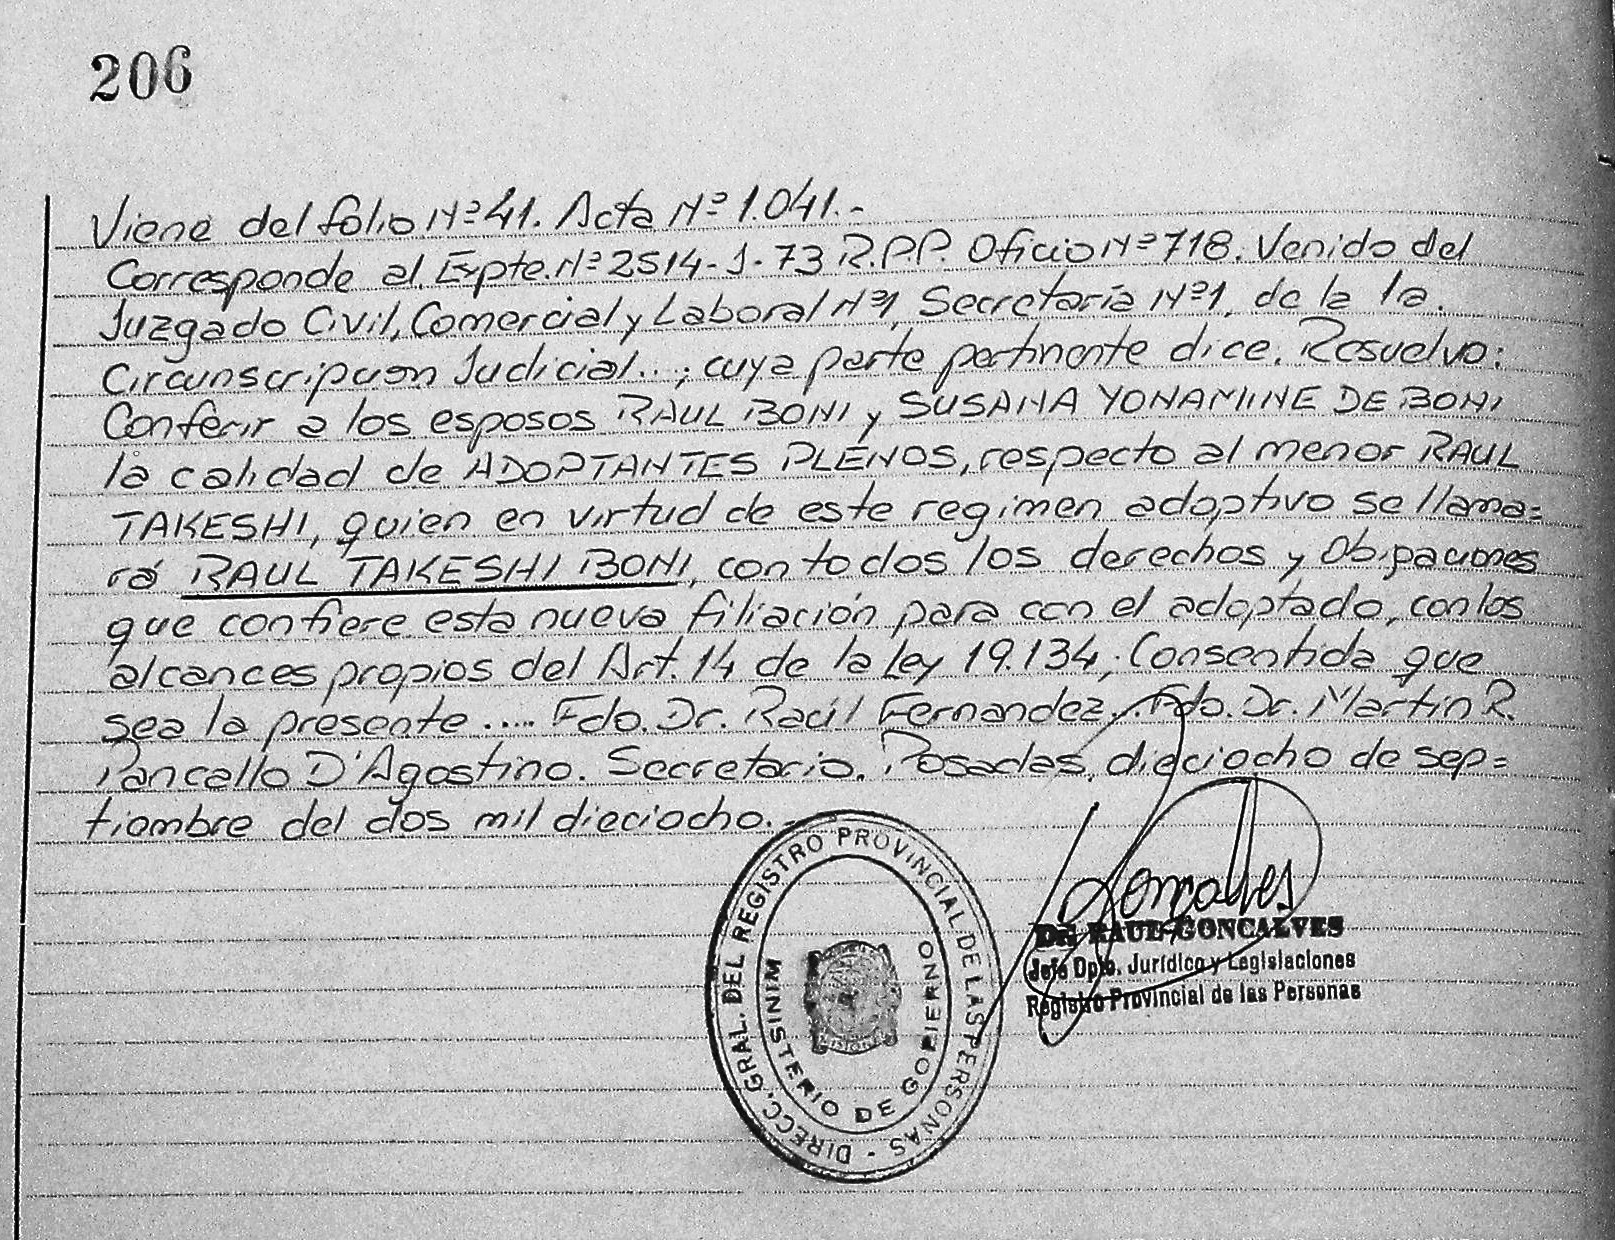 206
Viene del folio Nº 41. Acta Nº 1.041.-
Corresponde al Expte. Nº 2514-J-73 R.P.P. Oficio Nº 718. Venido del
Juzgado Civil, Comercial y Laboral Nº1, Secretaría Nº1, de la 1a.
Circunscripcion Judicial...; cuya parte pertinente dice. Resuelvo:
Conferir a los esposos RAUL BONI y SUSANA YONAMINE DE BONI
la calidad de ADOPTANTES PLENOS, respecto al menor RAUL
TAKESHI, quien en virtud de este regimen adoptivo se llama=
rá RAUL TAKESHI BONI, con todos los derechos y Obligaciones
que confiere esta nueva filiación para con el adoptado, con los
alcances propios del Art. 14 de la Ley 19.134; Consentida que
sea la presente ..... Fdo. Dr. Raúl Fernandez. Fdo. Dr. Martín R.
Pancallo D'Agostino. Secretario. Posadas, dieciocho de sep=
tiembre del dos mil dieciocho.-
DIRECC. GRAL. DEL REGISTRO PROVINCIAL DE LAS PERSONAS -
MINISTERIO DE GOBIERNO
MISIONES
Goncalves
Dr. RAUL GONCALVES
Jefe Dpto. Jurídico y Legislaciones
Registro Provincial de las Personas